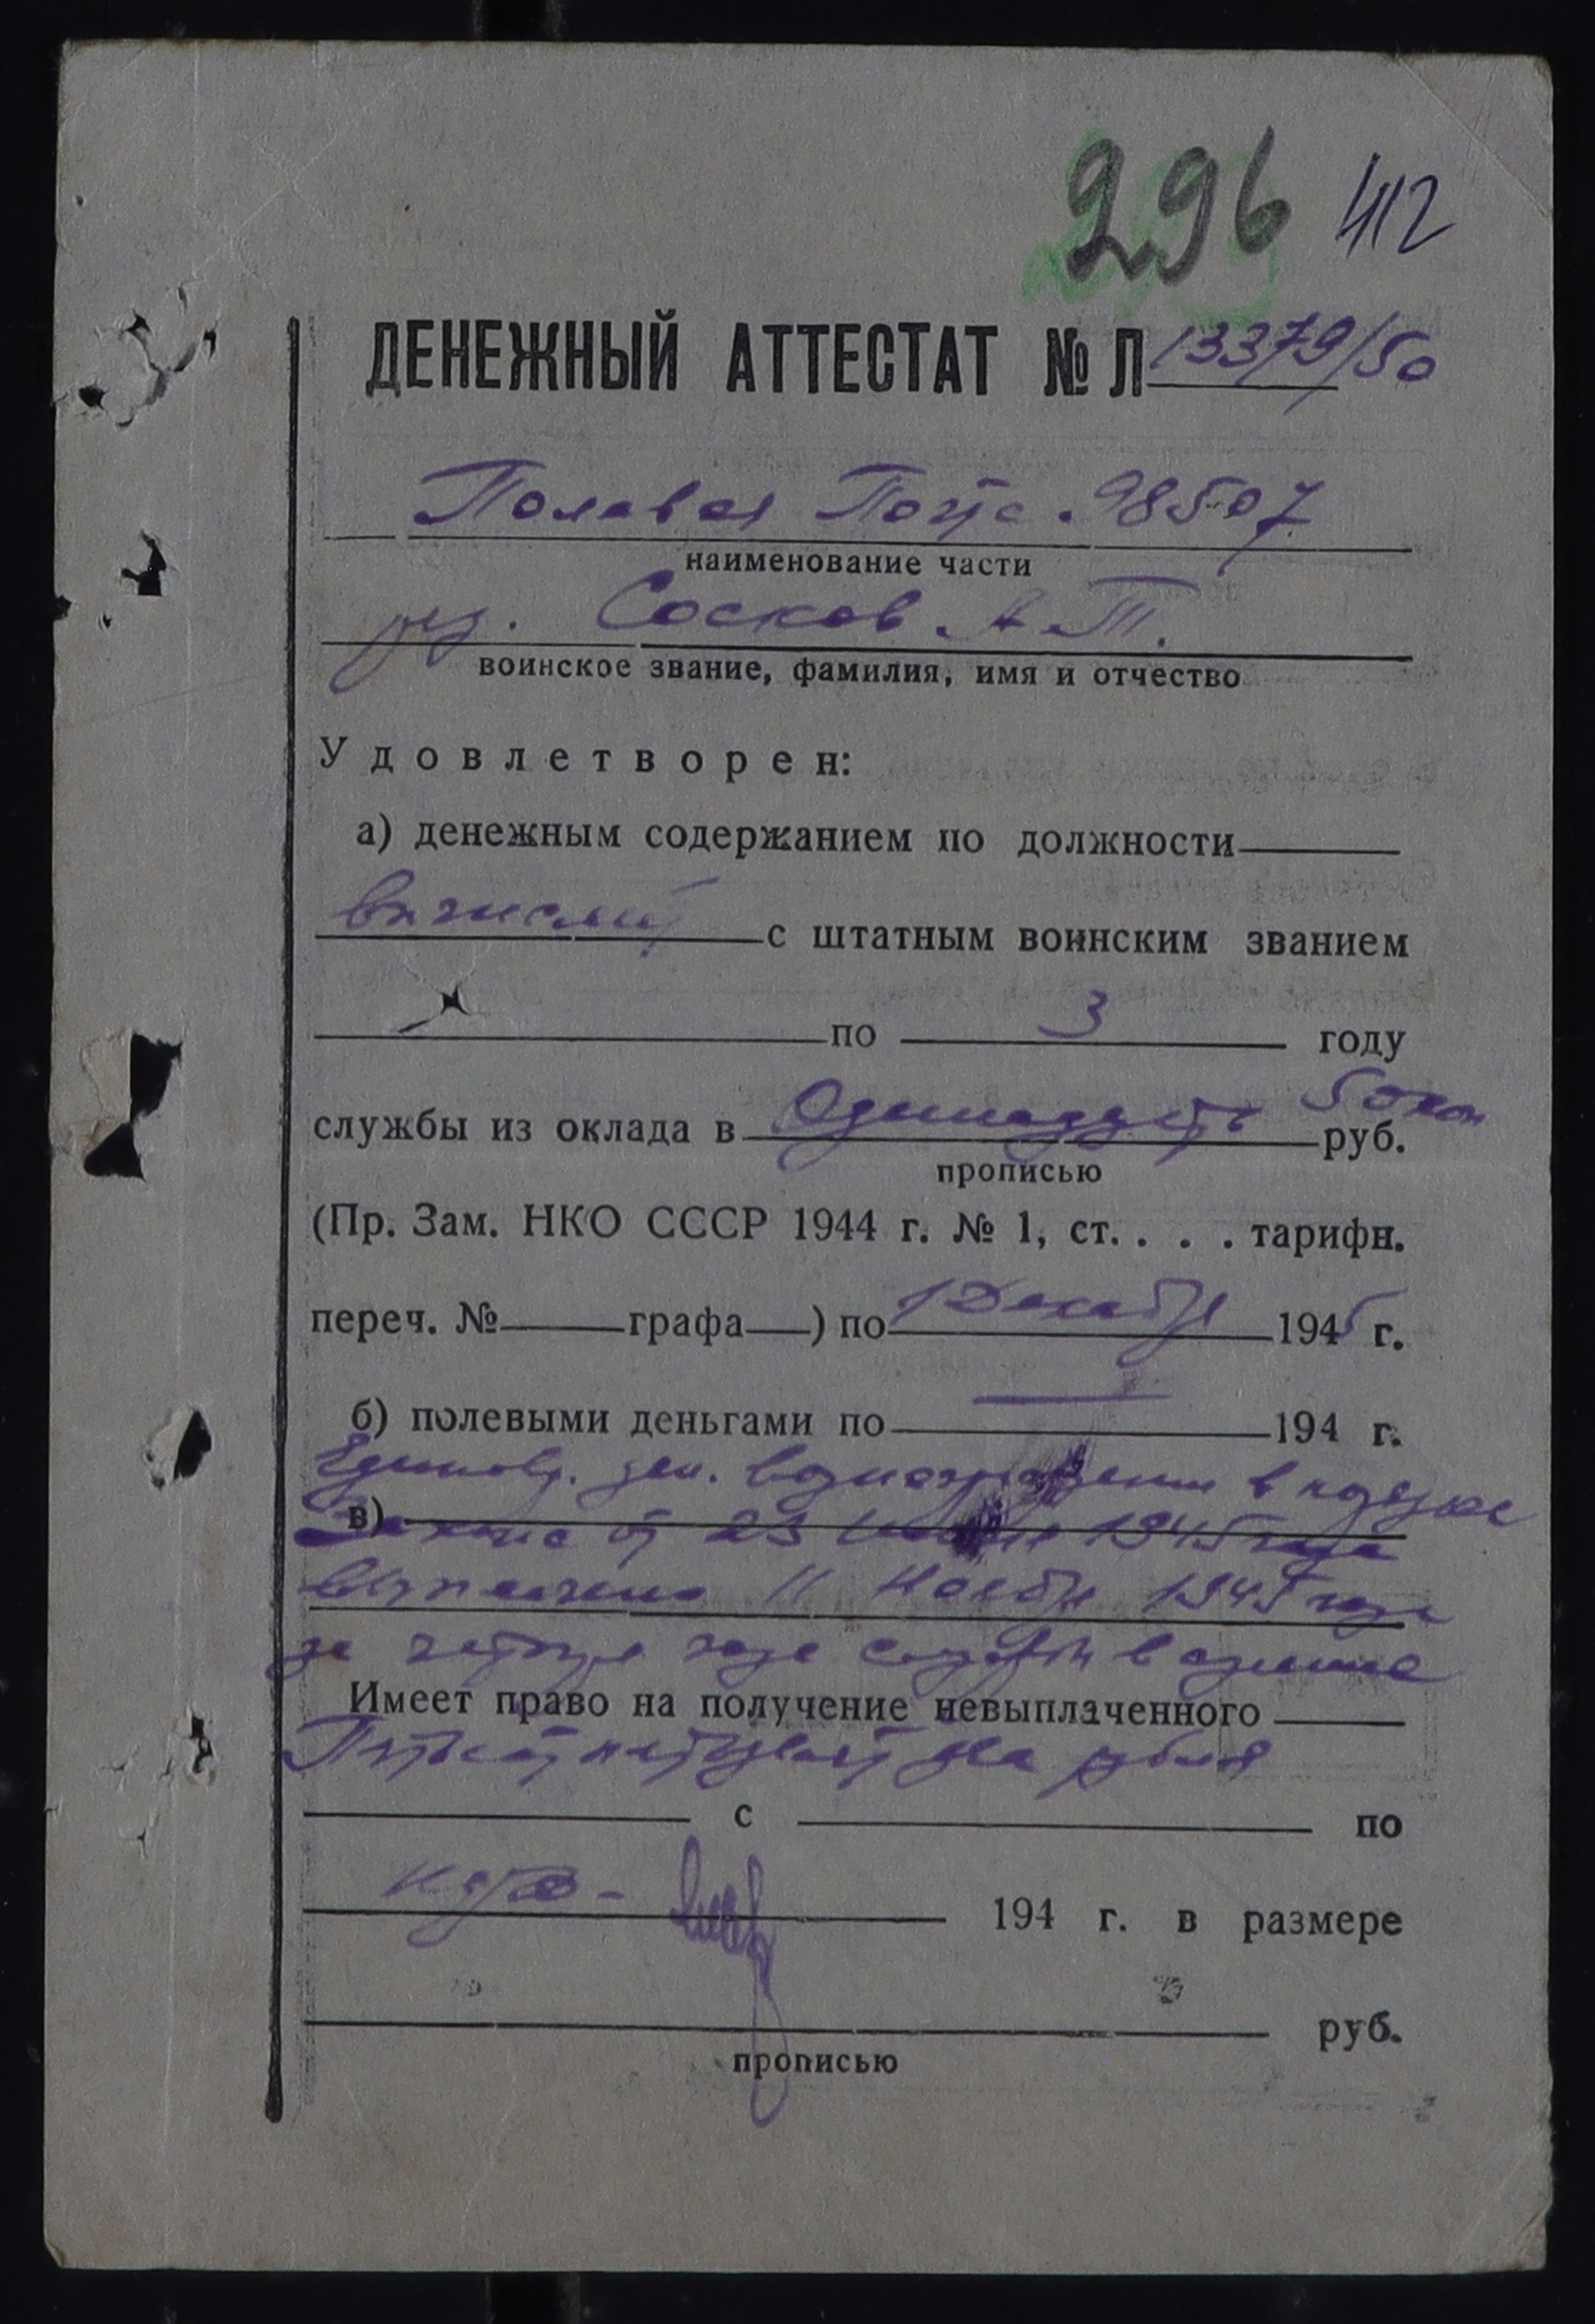 296 412
ДЕНЕЖНЫЙ АТТЕСТАТ № Л 13379/50
Полевая Почта 98507
наименование части
Сосков А. Т.
воинское звание, фамилия, имя и отчество
Удовлетворен:
а) денежным содержанием по должности
с штатным воинским званием
по 3 году
службы из оклада в Одинадцать 50 коп руб.
прописью
(Пр. Зам. НКО СССР 1944 г. № 1, ст. . . . тарифн.
переч. № графа ) по 1 Декабря 1945 г.
б) полевыми деньгами по 194 г.
Единовр. ден. вознаграждение в порядке
в) Закона от 23 Июня 1945 года
выплачено 11 Ноября 1945 года
за четыре года службы в сумме
Имеет право на получение невыплаченного
рубля
с по
194 г. в размере
руб.
прописью